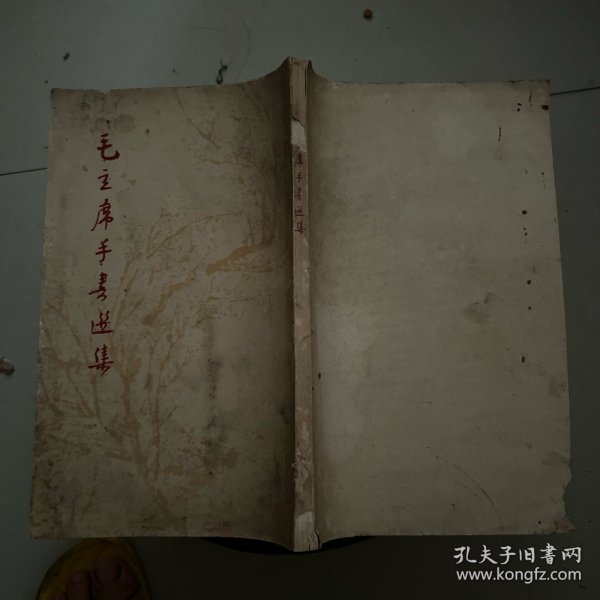 毛主席手書選集
席手書選集
孔夫子旧書网
www.kongfz.com